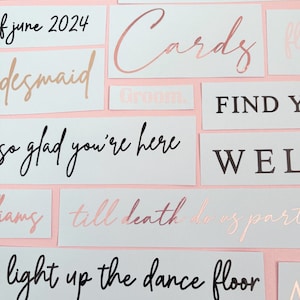 of june 2024
Cards
desmaid
Groom.
FIND Y
so glad you're here
WEL
iams
till death do us part
light up the dance floor